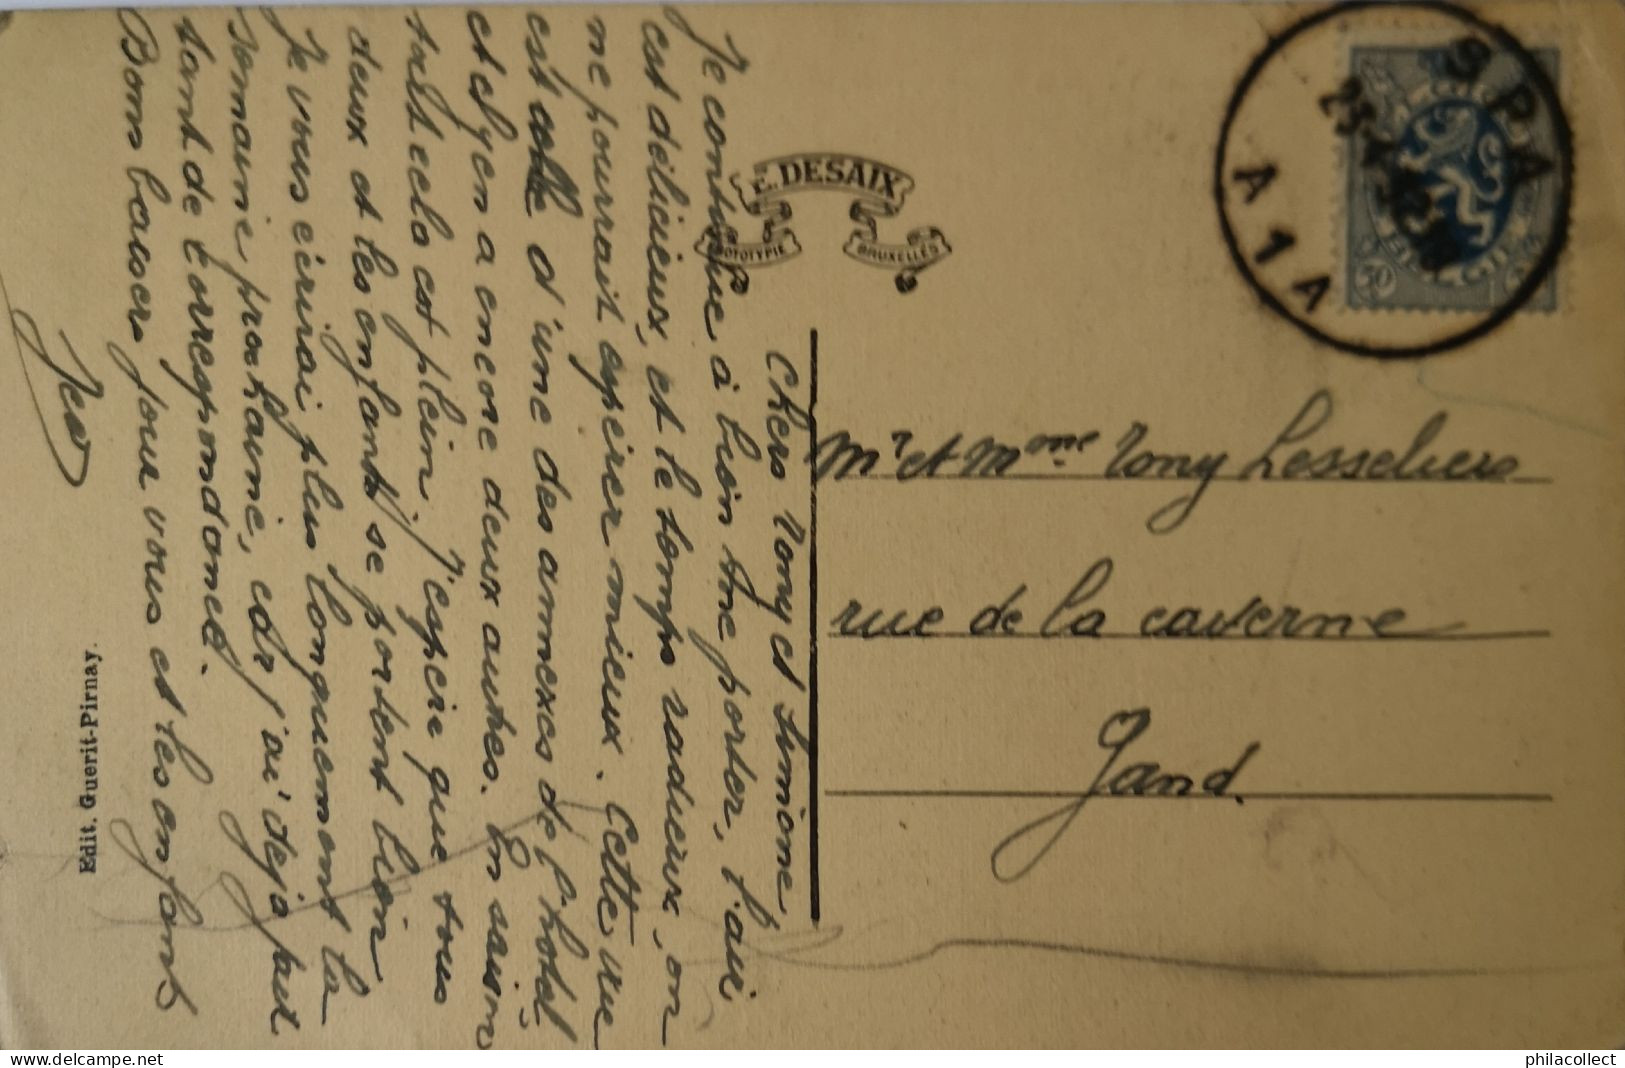 Chers Tony et Simone,
Je continue à bien me porter, l'air
est délicieux, et le temps radieux, on
ne pourrait espérer mieux. Cette vue
est celle d'une des annexes de l'hôtel
et il y en a encore deux autres. En saison
tout cela est plein. J'espère que tous
deux et les enfants se portent bien
Je vous écrirai plus longuement la
semaine prochaine, car j'ai déjà fait
tant de correspondance.
Bons baisers pour vous et les enfants
Edit. Guerit-Pirnay.
E. DESAIX
PHOTOTYPIE
BRUXELLES
SPA
A 1 A
BELGIE
50
Mr et Mme Tony Lesseliers
rue de la caverne
Gand.
www.delcampe.net
philacollect